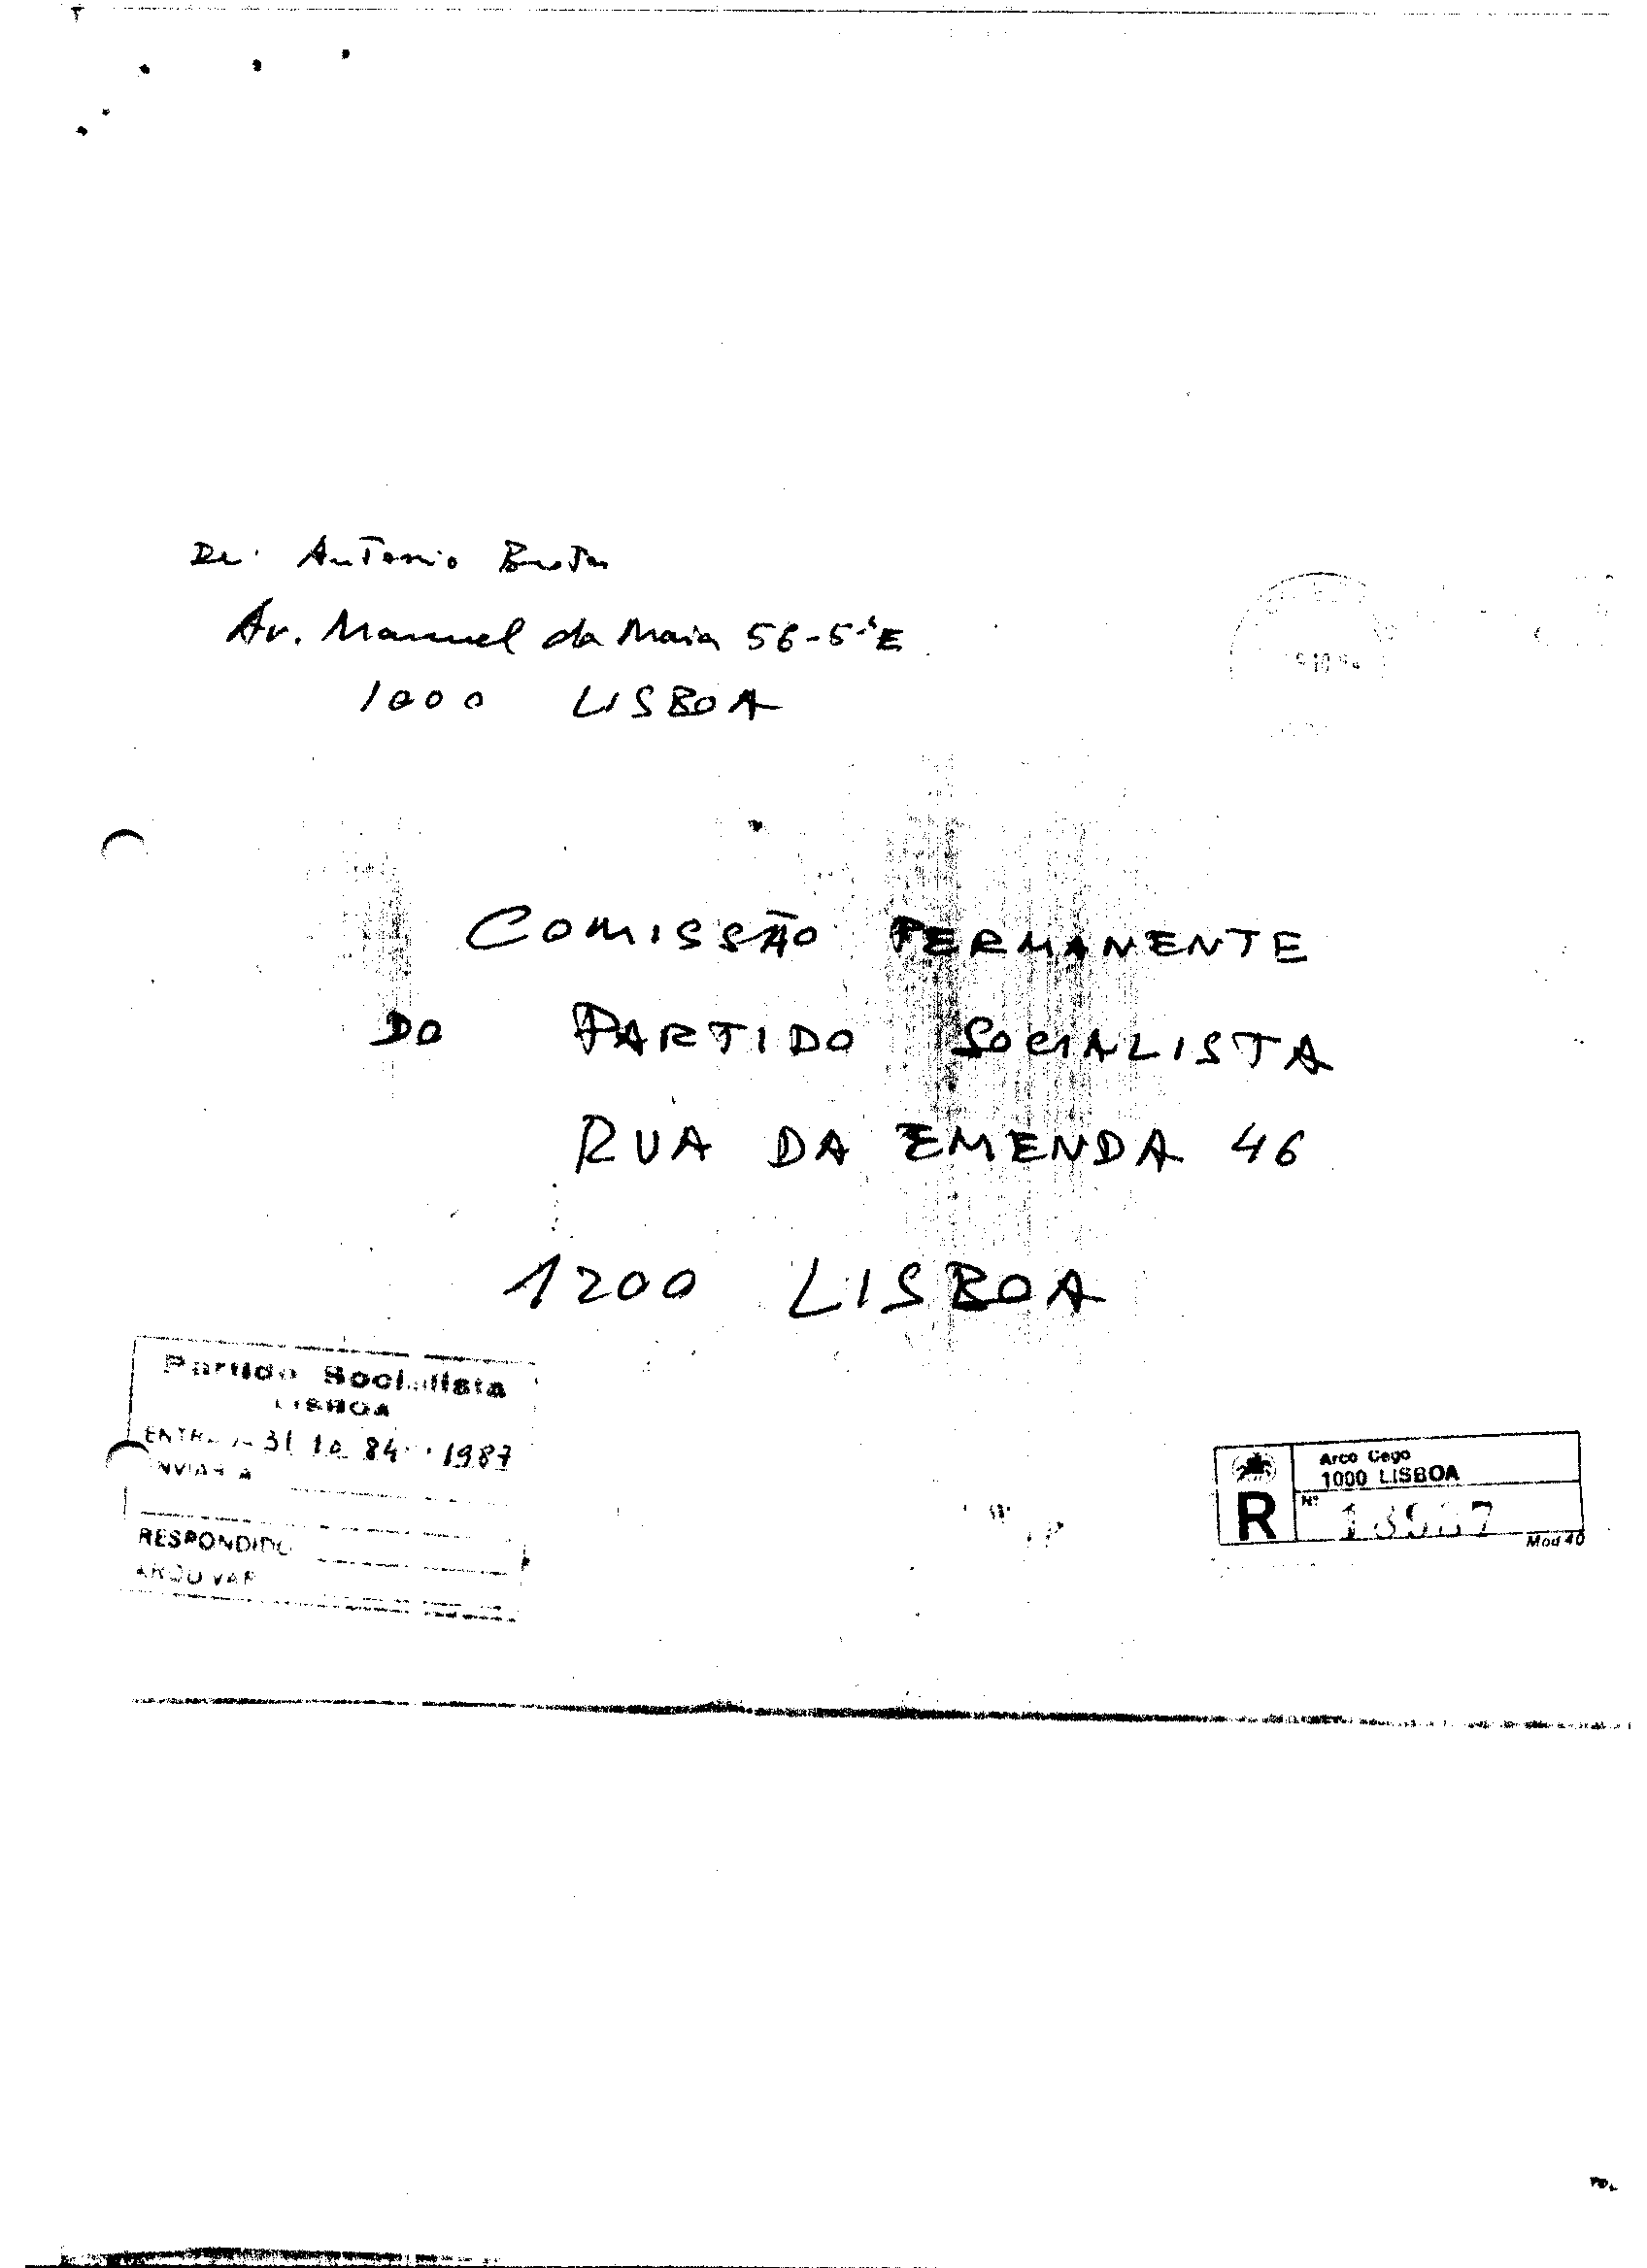 De: Antonio Brotas
Av. Manuel da Maia 56-5ºE
1000 LISBOA
COMISSÃO PERMANENTE
DO PARTIDO SOCIALISTA
RUA DA EMENDA 46
1200 LISBOA
Partido Socialista
LISBOA
31 10 84 1987
ENVIAR A
RESPONDIDO
ARQUIVAR
Arco Cego
1000 LISBOA
R
Nº
Mod 40